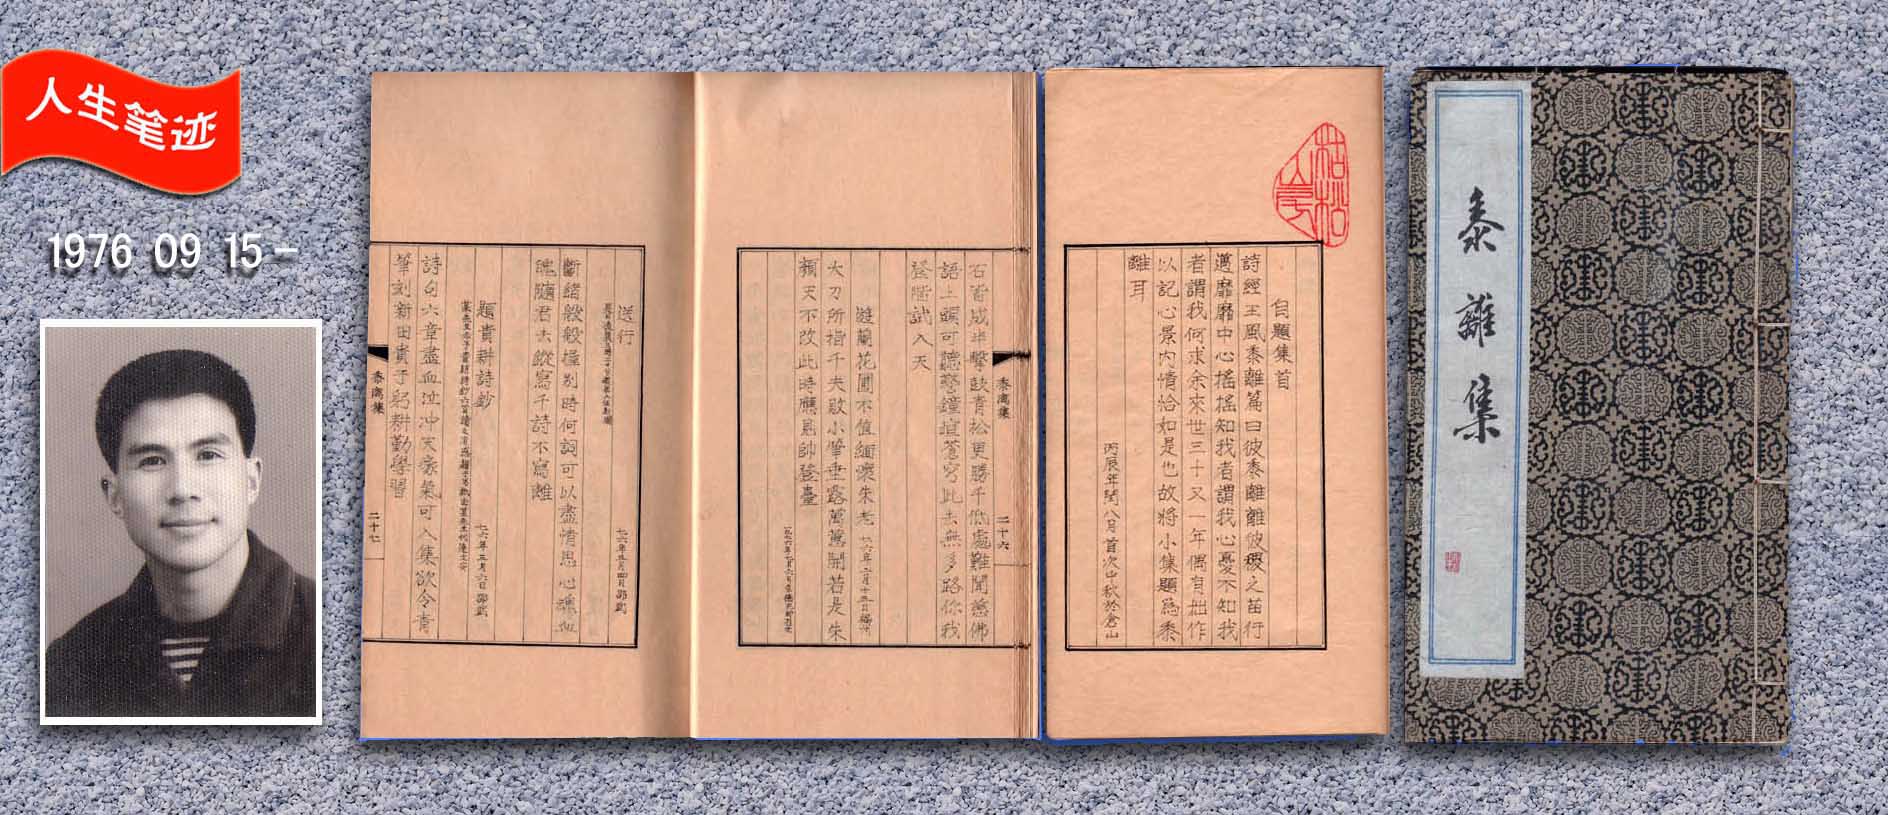 人生笔迹
1976 09 15-
黍離集
自題集首
詩經王風黍離篇曰彼黍離離彼稷之苗行
邁靡靡中心搖搖知我者謂我心憂不知我
者謂我何求余來世三十又一年偶有拙作
以記心景內情恰如是也故將小集題為黍
離耳
丙辰年閏八月首次中秋於倉山
枯松
黍离集
二十六
語上頭可聽警鐘 蒼穹此去無多路你我
登階試入天
遊蘭花圃不值緬懷朱老
大刀所指千夫敗小筆垂露萬蕙開若是朱
顏天不改此時應是帥登臺
送行
斷緒般般機別時何詞可以盡情思心魂血
魄隨君去縱寫千詩不寫離
七六年五月四日邵武
題貴耕詩鈔
七六年五月六日邵武
詩句六章盡血泣冲天豪氣可入集欲令青
筆刻新田貴于躬耕勤學習
黍离集
二十七